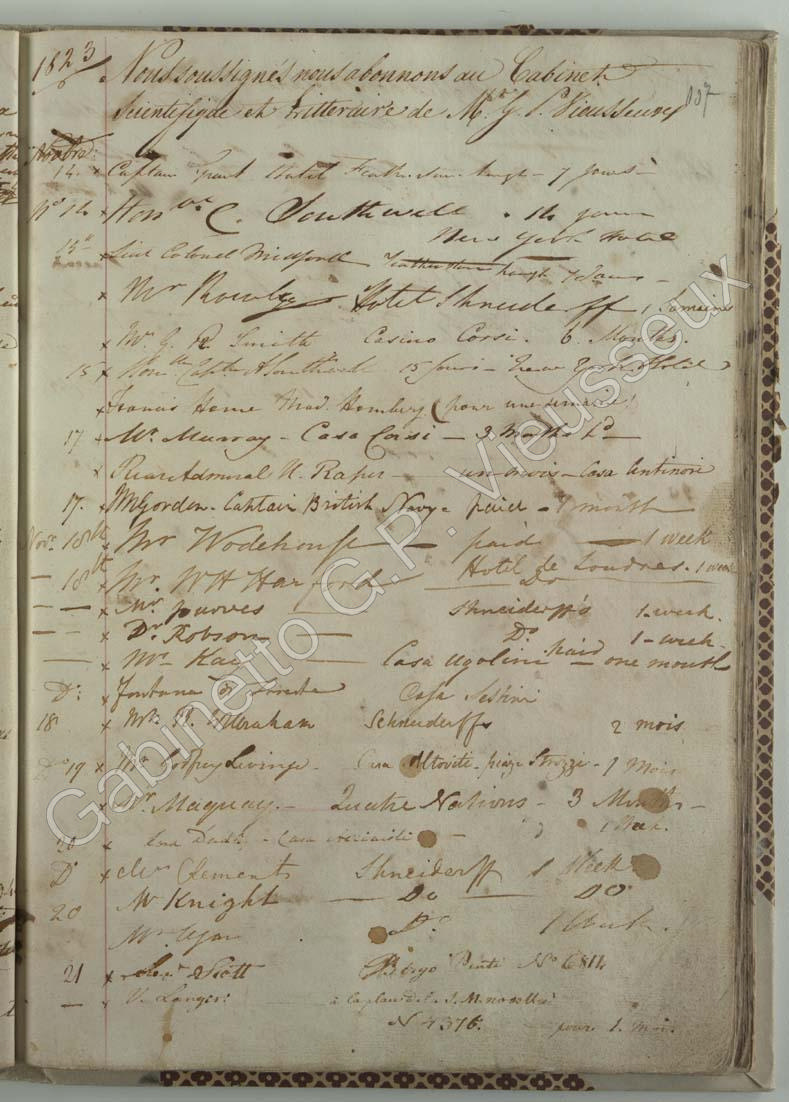 1823
Nous soussignés nous abonnons au Cabinet
Scientifique et Litteraire de Mr. G. P. Vieusseux
137
Novbre
14. x Captain Grant Hotel 7 jours
No 14 x Honble C. Southwell . 14 jours
New York Hotel
15 x Lieut Colonel Midford 7 Jours
x Mr Rowley Hotel Shneiderff 1 Semaine
x Mr. G. R. Smith Casino Corsi. 6 Months.
15 x Honble A Southwell 15 jours - New York Hotel
x Francis Home Mad. Homburg (pour une semaine)
17 x Mr. Murray - Casa Corsi - 3 Months Pd
x Rear Admiral H. Raper un mois - Casa Antinori
17. x Gordon - Captain British Navy - paid - 1 month
Novr. 18th x Mr Wodehouse - paid - 1 week
Hotel de Londres. 1 week
- 18th x Mr. W H Harford Do
-- x Mr Purves Shneiderff's 1 week.
-- x Dr Robson Do paid 1 - week.
- x Mr Kaey Casa Ugolini - one month
Do: x Fontana Casa Sestini
18 x Mr. Schneiderffs 2 mois
Do 19 x Mr Godfrey Levinge - Casa Altoviti - piazza Strozzi - 1 Mois
x Mr. Maquay. - Quatre Nations - 3 Months -
20 x Casa Acciaioli 1 Week.
Do x Mr Clements Shneiderff 1 Week
20 Mr Knight - Do - Do
Mr Do 1 Week.
21 x Scott Borgo Pinti No 6811
- x V. Langer à la place de S. M. novella
N 4376. pour 1. mois.
Gabinetto G.P. Vieusseux